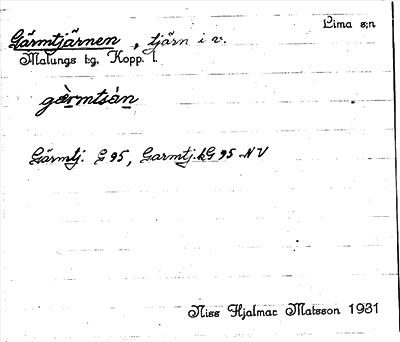 Lima s:n
Gärmtjärnen, tjärn i v.
Malungs t:g, Kopp. l.
gὰrmtsὰn
Gärmtj. G 95, Garmtj. kG 95 NV
Niss Hjalmar Matsson 1931